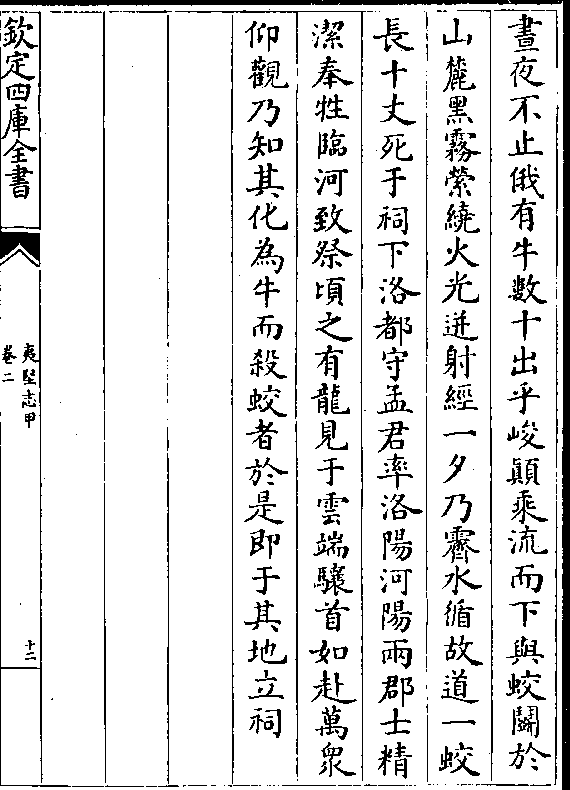 晝夜不止俄有牛數十出乎峻顛乘流而下與蛟鬭於
山麓黑霧縈繞火光迸射經一夕乃霽水循故道一蛟
長十丈死于祠下洛都守孟君率洛陽河陽兩郡士精
潔奉牲臨河致祭頃之有龍見于雲端驤首如赴萬衆
仰觀乃知其化為牛而殺蛟者於是即于其地立祠
欽定四庫全書
夷堅志甲
卷二
十二